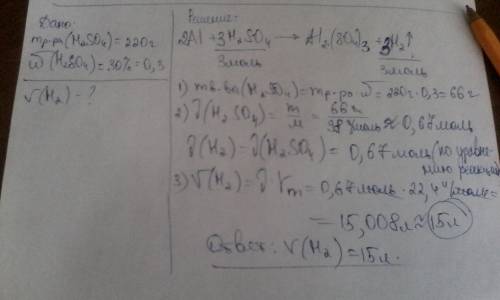 Дано:
mр-ра(H₂SO₄) = 220г
ω(H₂SO₄) = 30% = 0,3
V(H₂) - ?
Решение:
2Al + 3H₂SO₄ → Al₂(SO₄)₃ + 3H₂↑
3моль 3моль
1) mв-ва(H₂SO₄) = mр-ра · ω = 220г · 0,3 = 66г
2) ν(H₂SO₄) = m/M = 66г / 98 г/моль ≈ 0,67моль
ν(H₂) = ν(H₂SO₄) = 0,67моль (по уравне-
нию реакции)
3) V(H₂) = ν · Vm = 0,67моль · 22,4 л/моль =
= 15,008л ≈ 15л
Ответ: V(H₂) = 15л.